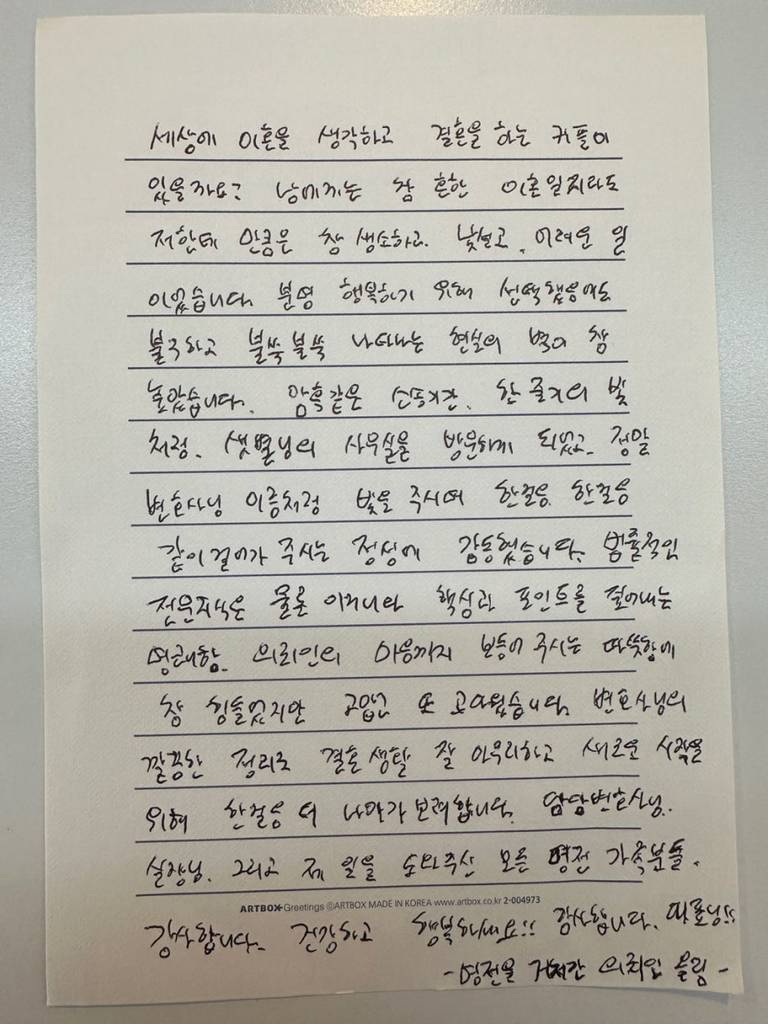 세상에 이혼을 생각하고 결혼을 하는 커플이
있을까요? 남에게는 참 흔한 이혼일지라도
저한테 만큼은 참 생소하고. 낯설고. 어려운 일
이었습니다. 분명 행복하기 위해 선택했음에도
불구하고 불쑥불쑥 나타나는 현실의 벽이 참
높았습니다. 암흑같은 소송기간. 한 줄기의 빛
처럼. 샛별님의 사무실을 방문하게 되었고. 정말
변호사님 이름처럼 빛을 주시며 한걸음. 한걸음
같이 걸어가 주시는 정성에 감동했습니다. 법률적인
전문지식은 물론 이거니와 핵심과 포인트를 짚어내는
명쾌함. 의뢰인의 마음까지 보듬어 주시는 따뜻함에
참 힘들었지만 고맙고 또 고마웠습니다. 변호사님의
깔끔한 정리로 결혼생활 잘 마무리하고 새로운 시작을
위해 한걸음 더 나아가보려합니다. 담당변호사님.
실장님. 그리고 제 일을 도와주신 모든 명전 가족분들.
ARTBOX Greetings ⓒARTBOX MADE IN KOREA www.artbox.co.kr 2-004973
감사합니다. 건강하고 행복하세요!! 감사합니다. 대표님!!
- 명전을 거쳐간 의뢰인 올림 -